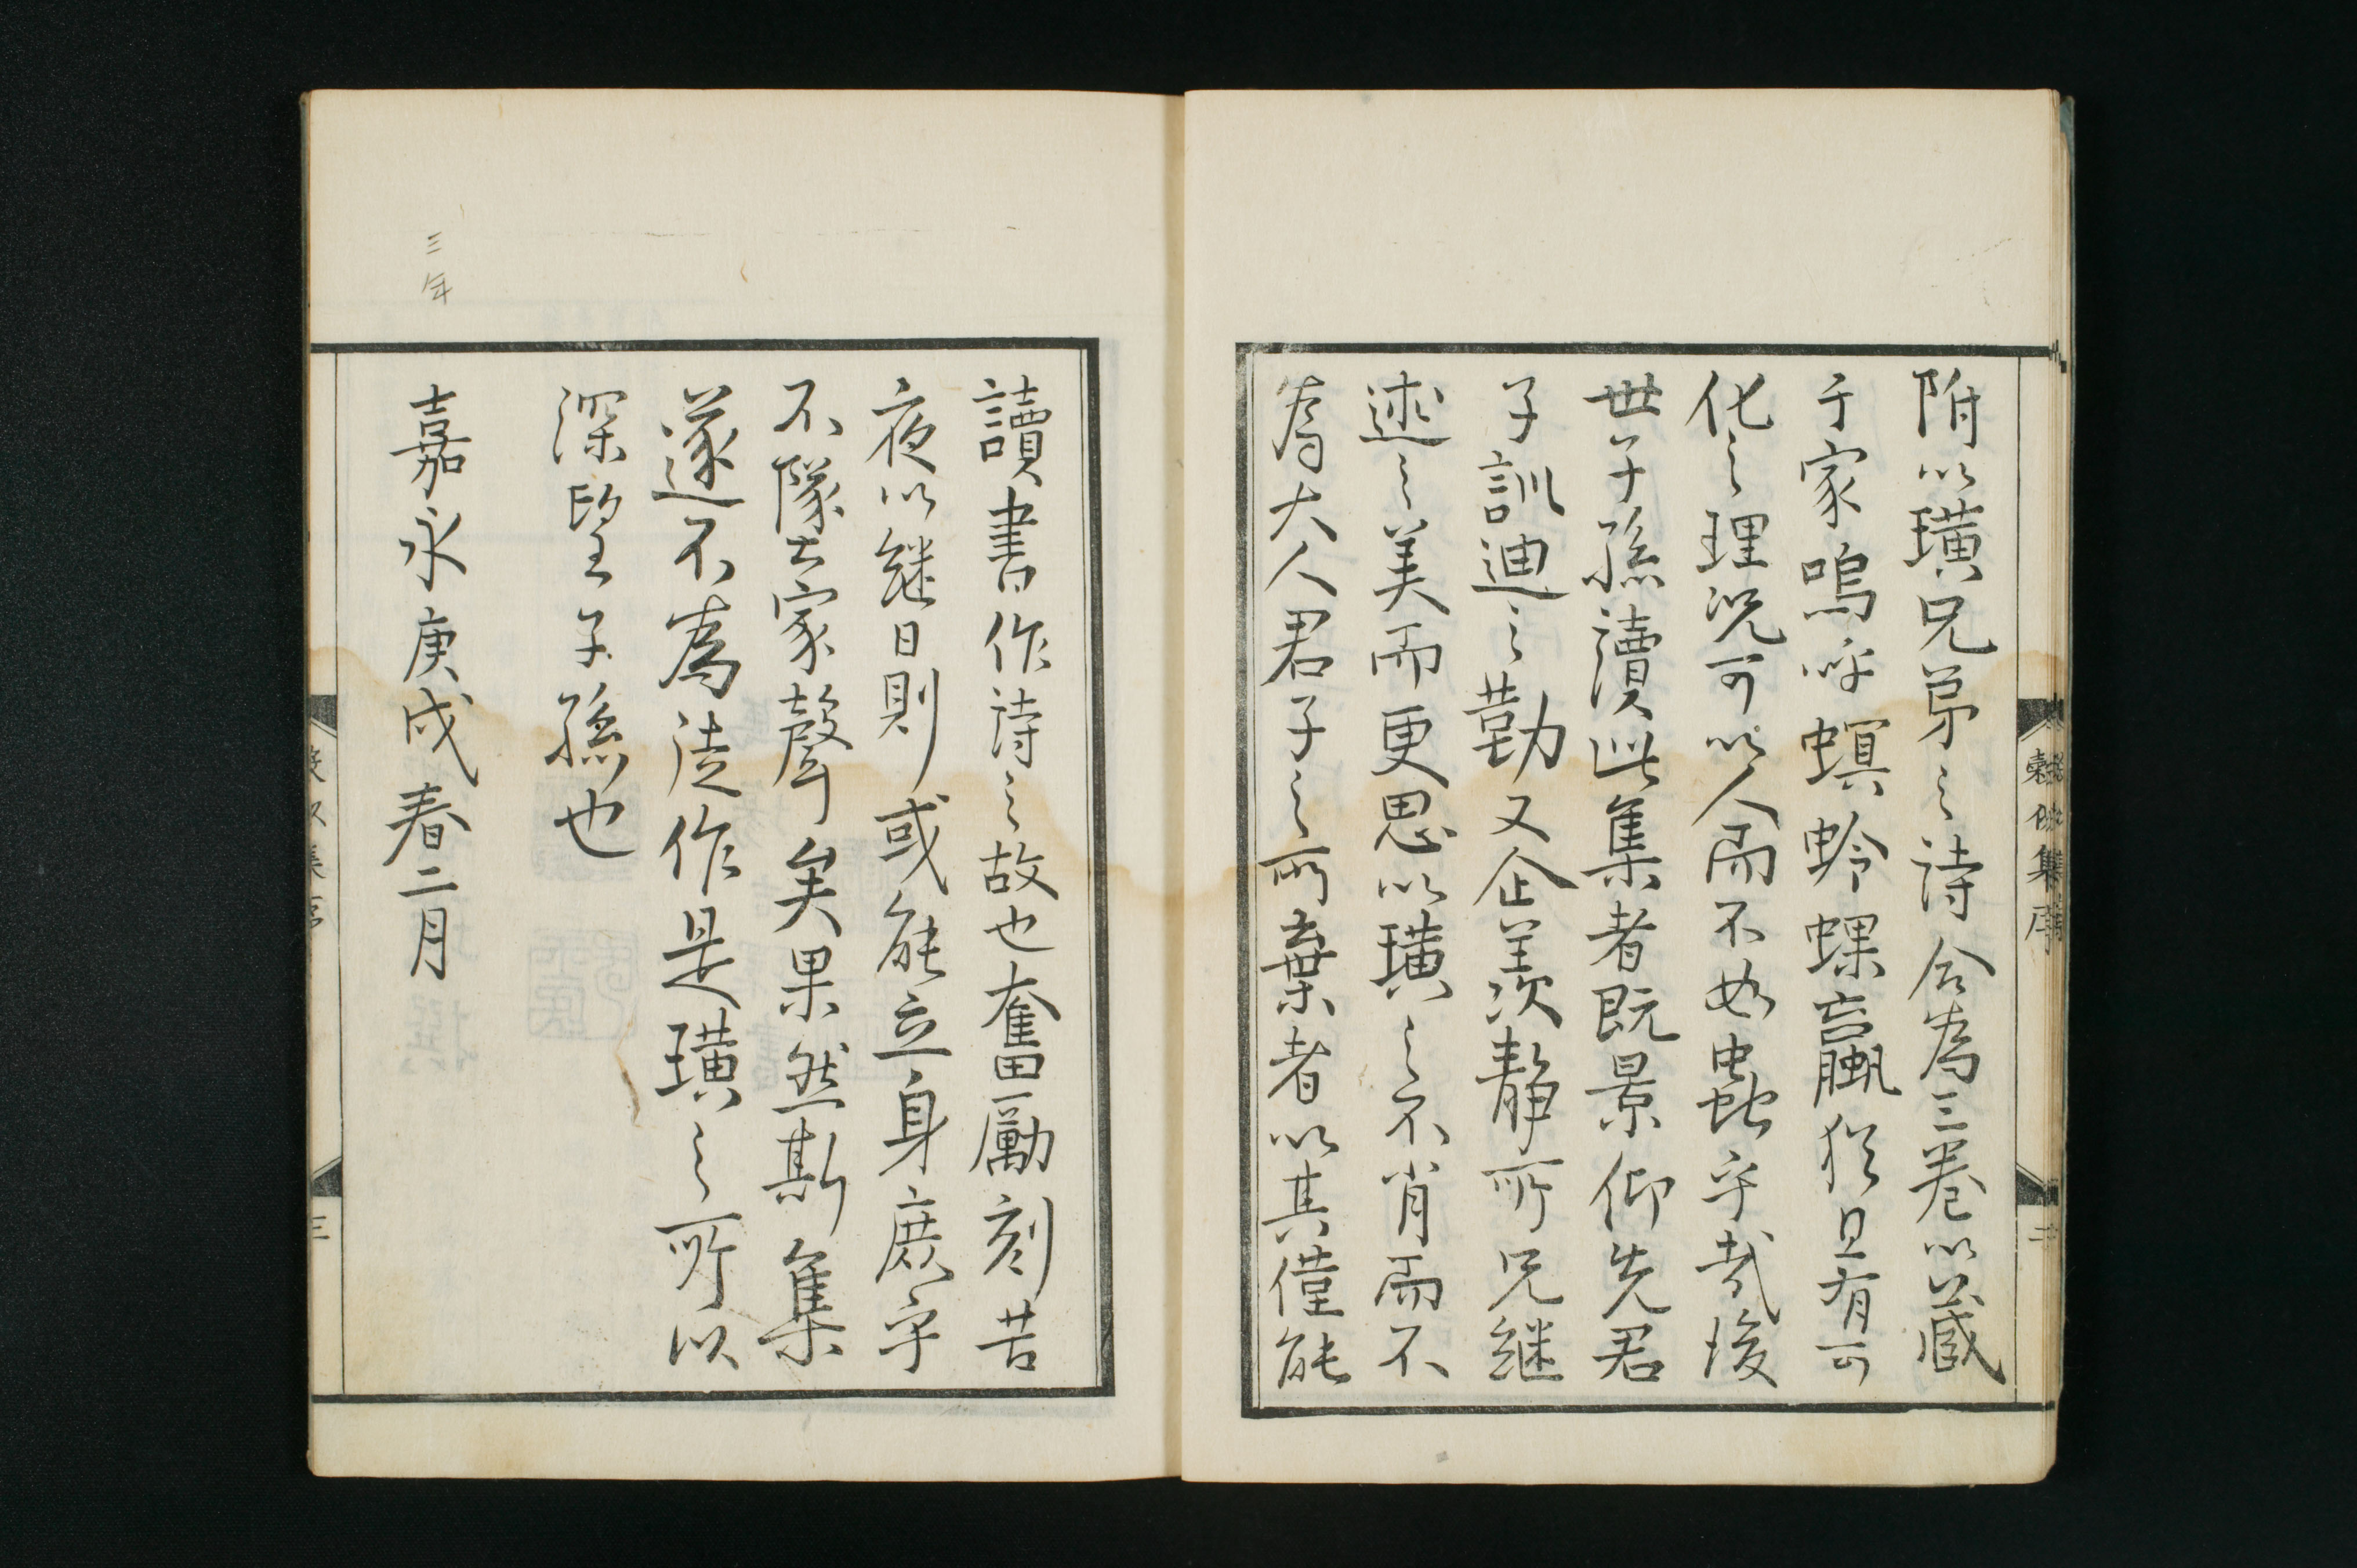 附以璜兄弟之詩合為三卷以藏
于家嗚呼螟蛉螺蠃猶且有可
化之理況可以人而不如蟲乎哉後
世子孫讀此集者既景仰先君
子訓迪之勤又企羨靜所兄継
述之美而更思以璜之不肖而不
為大人君子之所棄者以其僅能
讀書作詩之故也奮勵刻苦
夜以継日則或能立身庶乎
不墜家聲矣果然斯集
遂不為徒作是璜之所以
深望子孫也
嘉永庚戌春二月
三年
集序
三